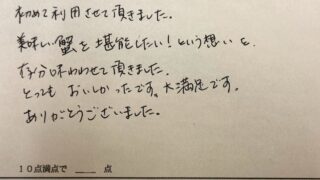 初めて利用させて頂きました。
美味しい蟹を堪能したい！という想いを、
存分味わわせて頂きました。
とっても おいしかったです。大満足です。
ありがとうございました。
10点満点で ＿＿ 点